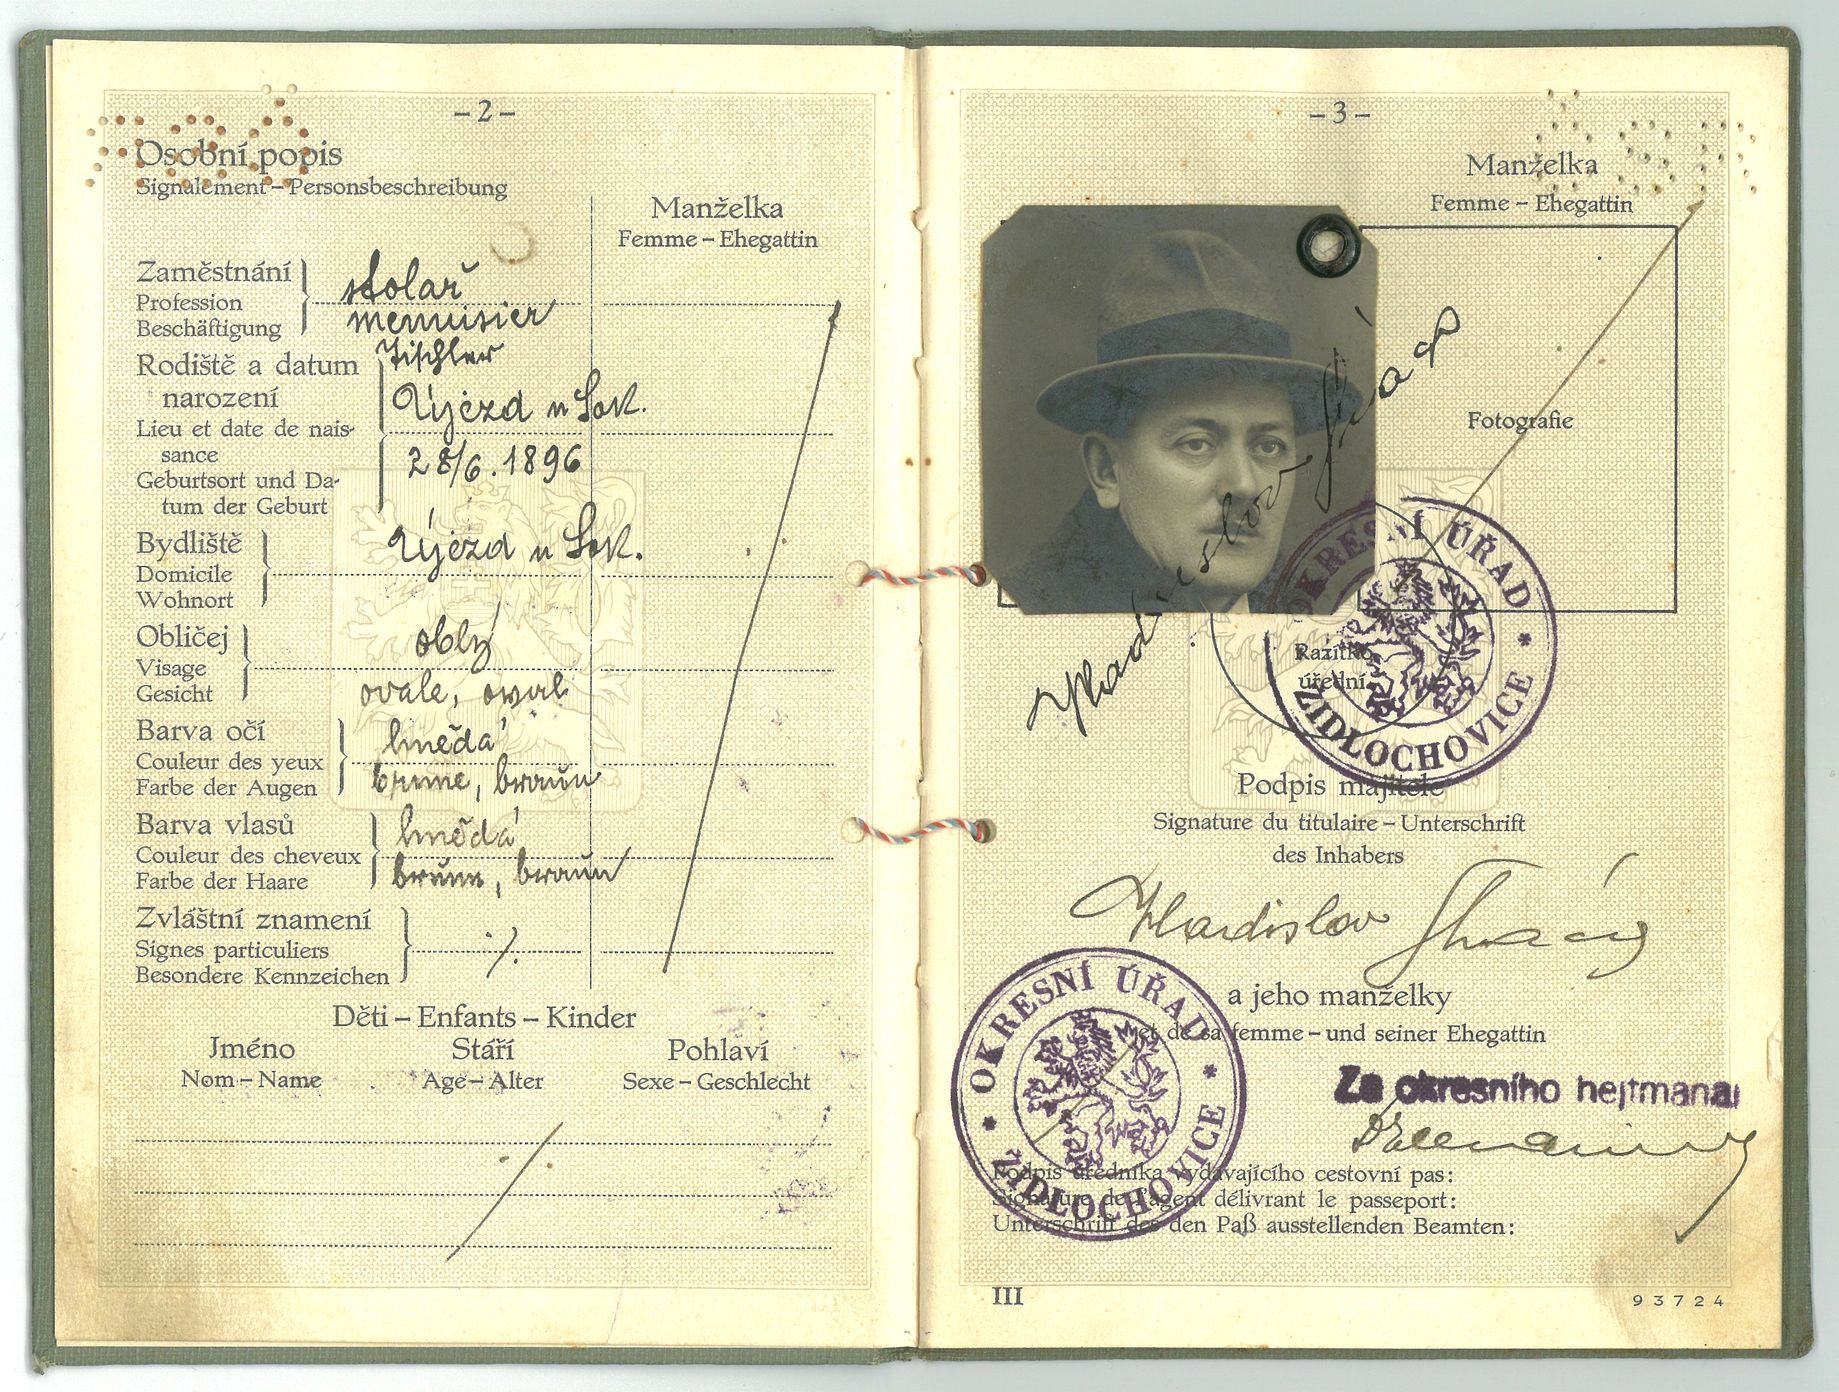 – 2 –
Osobní popis
Signalement – Personsbeschreibung
Manželka
Femme – Ehegattin
Zaměstnání
Profession
Beschäftigung
stolař
menuisier
Tischler
Rodiště a datum
narození
Lieu et date de nais-
sance
Geburtsort und Da-
tum der Geburt
Újezd u Sok.
28/6. 1896
Bydliště
Domicile
Wohnort
Újezd u Sok.
Obličej
Visage
Gesicht
oblý
ovale, oval
Barva očí
Couleur des yeux
Farbe der Augen
hnědá
brune, braun
Barva vlasů
Couleur des cheveux
Farbe der Haare
hnědá
brune, braun
Zvláštní znamení
Signes particuliers
Besondere Kennzeichen
./.
Děti – Enfants – Kinder
Jméno
Stáří
Pohlaví
Nom – Name
Age – Alter
Sexe – Geschlecht
– 3 –
Manželka
Femme – Ehegattin
Fotografie
Vladislav
OKRESNÍ ÚŘAD
ŽIDLOCHOVICE
Razítko
úřední
Podpis majitele
Signature du titulaire – Unterschrift
des Inhabers
Vladislav
a jeho manželky
et de sa femme – und seiner Ehegattin
OKRESNÍ ÚŘAD
ŽIDLOCHOVICE
Za okresního hejtmana:
Podpis úředníka vydávajícího cestovní pas:
Signature de l'agent délivrant le passeport:
Unterschrift des den Paß ausstellenden Beamten:
III
93724